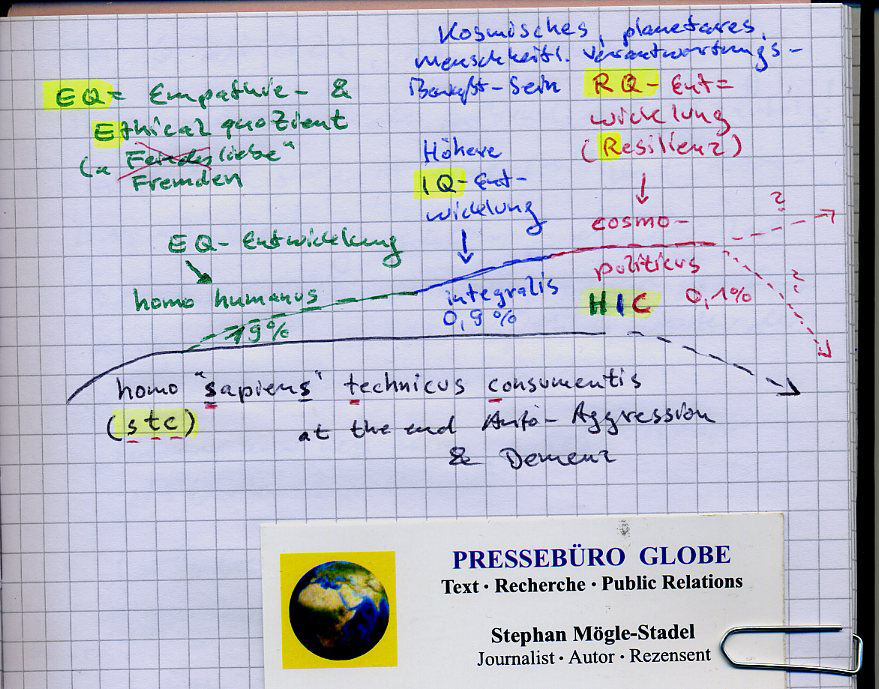 Kosmisches, planetares,
menschheitl. Verantwortungs-
Bewußt-Sein
EQ = Empathie- &
Ethical quotient
("Feindesliebe"
Fremden
Höhere
IQ-Ent-
wicklung
RQ-Ent=
wicklung
(Resilienz)
EQ-Entwicklung
homo humanus
19%
integralis
0,9%
cosmo-
politicus
HIC 0,1%
?
?
homo "sapiens" technicus consumentis
(stc) at the end Auto-Aggression
& Demenz
PRESSEBÜRO GLOBE
Text · Recherche · Public Relations
Stephan Mögle-Stadel
Journalist · Autor · Rezensent